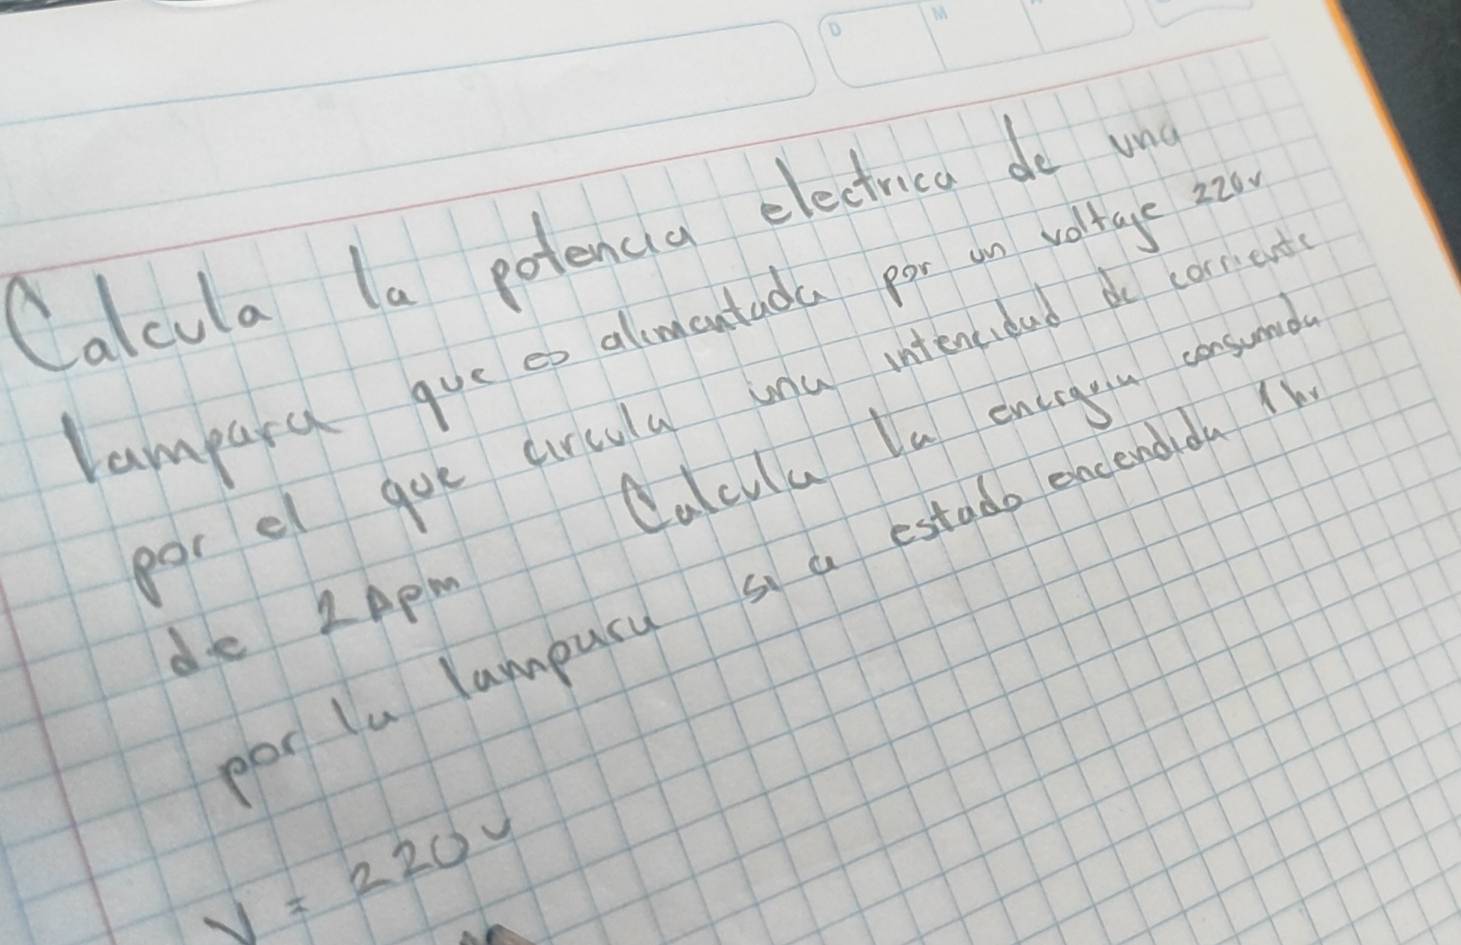 D M
Calcula la potencia electrica de una
lampara que es alimentada por un voltaje 220v
por el que circula una intencidad de corriente
de 2 Apm Calcula la energia consumida
por la lampara si a estado encendida 1hr
V = 220v